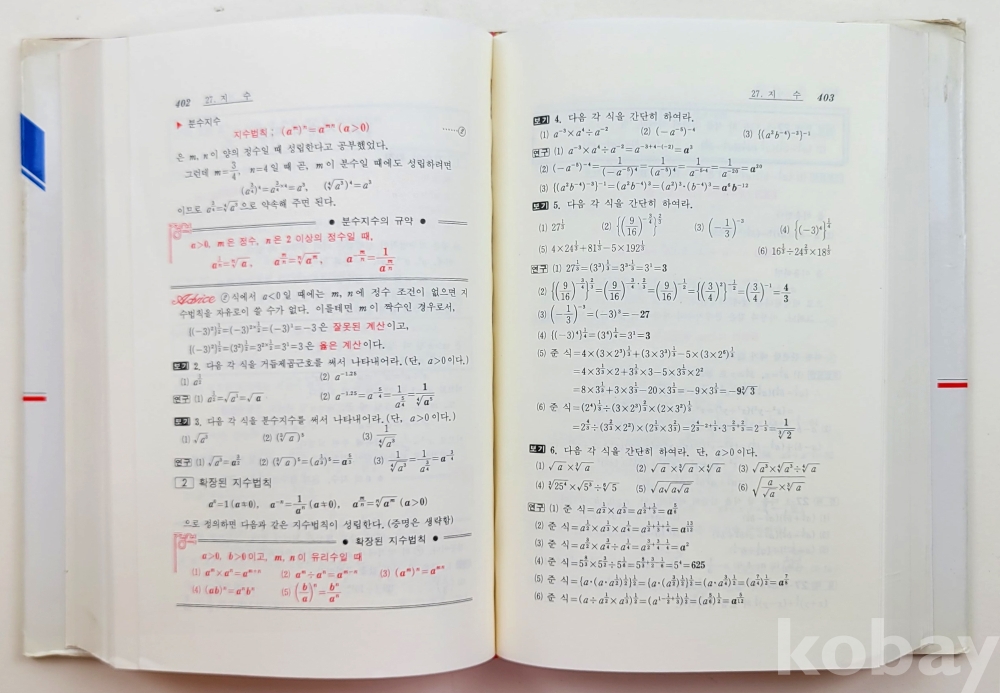 402 27. 지 수
▶ 분수지수
지수법칙 ; (aᵐ)ⁿ=aᵐⁿ (a>0) ……㉮
은 m, n이 양의 정수일 때 성립한다고 공부했었다.
그런데 m=3/4, n=4일 때 곧, m이 분수일 때에도 성립하려면
(a^(3/4))⁴=a^(3/4×4)=a³, (⁴√a³)⁴=a³
이므로 a^(3/4)=⁴√a³으로 약속해 주면 된다.
● 분수지수의 규약 ●
a>0, m은 정수, n은 2 이상의 정수일 때,
a^(1/n)=ⁿ√a, a^(m/n)=ⁿ√aᵐ, a^(-m/n)=1/a^(m/n)
Advice 식에서 a<0일 때에는 m, n에 정수 조건이 없으면 지
수법칙을 자유로이 쓸 수가 없다. 이를테면 m이 짝수인 경우로서,
{(-3)²}^(1/2)=(-3)^(2×1/2)=(-3)¹=-3은 잘못된 계산이고,
{(-3)²}^(1/2)=(3²)^(1/2)=3^(2×1/2)=3¹=3은 옳은 계산이다.
보기 2. 다음 각 식을 거듭제곱근호를 써서 나타내어라.(단, a>0이다.)
(1) a^(1/2) (2) a^(-1.25)
연구 (1) a^(1/2)=√a (2) a^(-1.25)=a^(-5/4)=1/a^(5/4)=1/⁴√a⁵
보기 3. 다음 각 식을 분수지수를 써서 나타내어라.(단, a>0이다.)
(1) √a³ (2) (³√a)⁵ (3) 1/⁴√a³
연구 (1) √a³=a^(3/2) (2) (³√a)⁵=(a^(1/3))⁵=a^(5/3) (3) 1/⁴√a³=1/a^(3/4)=a^(-3/4)
2 확장된 지수법칙
a⁰=1(a≠0), a⁻ⁿ=1/aⁿ(a≠0), a^(m/n)=ⁿ√aᵐ (a>0)
으로 정의하면 다음과 같은 지수법칙이 성립한다.(증명은 생략함)
● 확장된 지수법칙 ●
a>0, b>0이고, m, n이 유리수일 때
(1) aᵐ×aⁿ=aᵐ⁺ⁿ (2) aᵐ÷aⁿ=aᵐ⁻ⁿ (3) (aᵐ)ⁿ=aᵐⁿ
(4) (ab)ⁿ=aⁿbⁿ (5) (b/a)ⁿ=bⁿ/aⁿ
27. 지 수 403
보기 4. 다음 각 식을 간단히 하여라.
(1) a⁻³×a⁴÷a⁻² (2) (-a⁻⁵)⁻⁴ (3) {(a²b⁻⁴)⁻³}⁻¹
연구 (1) a⁻³×a⁴÷a⁻²=a^(-3+4-(-2))=a³
(2) (-a⁻⁵)⁻⁴=1/(-a⁻⁵)⁴=1/(a⁻⁵)⁴=1/a^(-5·4)=1/a⁻²⁰=a²⁰
(3) {(a²b⁻⁴)⁻³}⁻¹=(a²b⁻⁴)³=(a²)³·(b⁻⁴)³=a⁶b⁻¹²
보기 5. 다음 각 식을 간단히 하여라.
(1) 27^(1/3) (2) {(9/16)^(-3/4)}^(2/3) (3) (-1/3)⁻³ (4) {(-3)⁴}^(1/4)
(5) 4×24^(1/3)+81^(1/3)-5×192^(1/3) (6) 16^(1/3)÷24^(2/3)×18^(1/3)
연구 (1) 27^(1/3)=(3³)^(1/3)=3^(3·1/3)=3¹=3
(2) {(9/16)^(-3/4)}^(2/3)=(9/16)^(-3/4·2/3)=(9/16)^(-1/2)={(3/4)²}^(-1/2)=(3/4)⁻¹=4/3
(3) (-1/3)⁻³=(-3)³=-27
(4) {(-3)⁴}^(1/4)=(3⁴)^(1/4)=3¹=3
(5) 준 식=4×(3×2³)^(1/3)+(3×3³)^(1/3)-5×(3×2⁶)^(1/3)
=4×3^(1/3)×2+3^(1/3)×3-5×3^(1/3)×2²
=8×3^(1/3)+3×3^(1/3)-20×3^(1/3)=-9×3^(1/3)=-9³√3
(6) 준 식=(2⁴)^(1/3)÷(3×2³)^(2/3)×(2×3²)^(1/3)
=2^(4/3)÷(3^(2/3)×2²)×(2^(1/3)×3^(2/3))=2^(4/3-2+1/3)·3^(-2/3+2/3)=2^(-1/3)=1/³√2
보기 6. 다음 각 식을 간단히 하여라. 단, a>0이다.
(1) √a×³√a (2) √a×³√a×⁴√a (3) √a³×⁴√a³÷⁴√a
(4) ³√25⁴×√5³÷⁶√5 (5) √(a√(a√a)) (6) √(a/√a×³√a)
연구 (1) 준 식=a^(1/2)×a^(1/3)=a^(1/2+1/3)=a^(5/6)
(2) 준 식=a^(1/2)×a^(1/3)×a^(1/4)=a^(1/2+1/3+1/4)=a^(13/12)
(3) 준 식=a^(3/2)×a^(3/4)÷a^(1/4)=a^(3/2+3/4-1/4)=a²
(4) 준 식=5^(8/3)×5^(3/2)÷5^(1/6)=5^(8/3+3/2-1/6)=5⁴=625
(5) 준 식={a·(a·a^(1/2))^(1/2)}^(1/2)={a·(a^(3/2))^(1/2)}^(1/2)=(a·a^(3/4))^(1/2)=(a^(7/4))^(1/2)=a^(7/8)
(6) 준 식=(a÷a^(1/2)×a^(1/3))^(1/2)=(a^(1-1/2+1/3))^(1/2)=(a^(5/6))^(1/2)=a^(5/12)
kobay